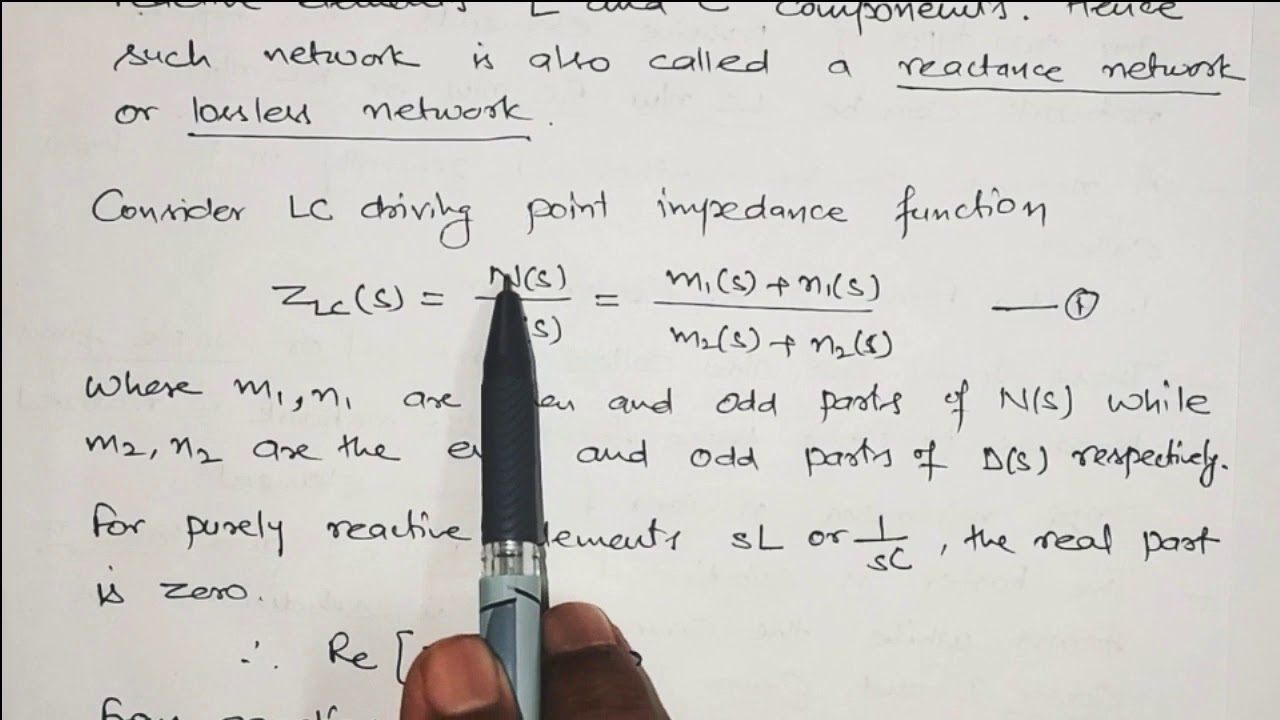 L and C components. Hence
such network is also called a reactance network
or lossless network.
Consider LC driving point impedance function
Z_LC(s) = N(s) / s) = m₁(s) + n₁(s) / m₂(s) + n₂(s) — ①
where m₁, n₁ are en and odd parts of N(s) while
m₂, n₂ are the e and odd parts of D(s) respectively.
For purely reactive lements sL or 1/sC, the real part
is zero.
∴ Re [